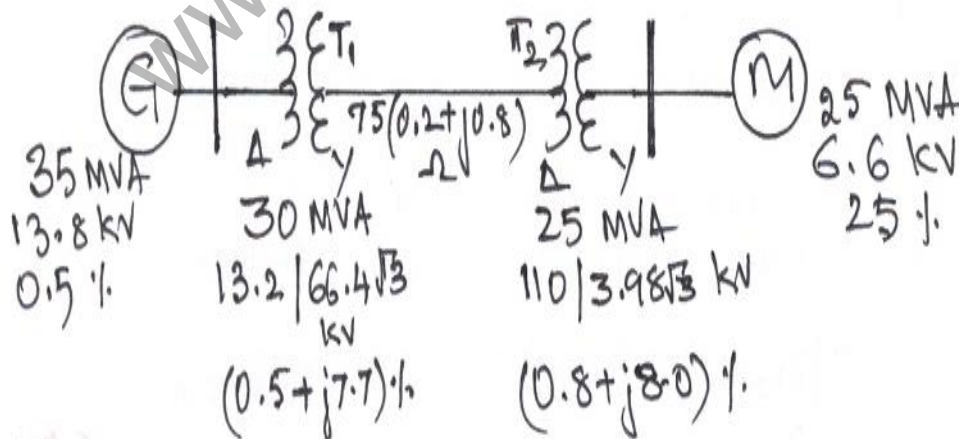 www
G
T₁
T₂
M
75(0.2+j0.8)
Ω
Δ
Y
Δ
Y
35 MVA
13.8 KV
0.5 %
30 MVA
13.2 | 66.4√3
KV
(0.5+j7.7)%
25 MVA
110 | 3.98√3 KV
(0.8+j8.0) %
25 MVA
6.6 KV
25 %